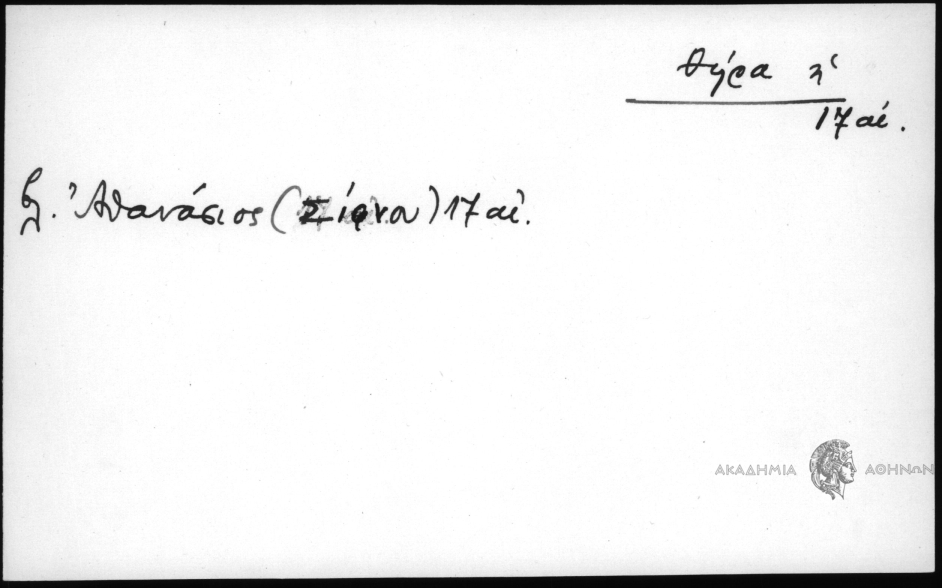 Θήρα
17 αἰ.
Ἀθανάσιος (Σίφνου) 17 αἰ.
ΑΚΑΔΗΜΙΑ ΑΘΗΝΩΝ